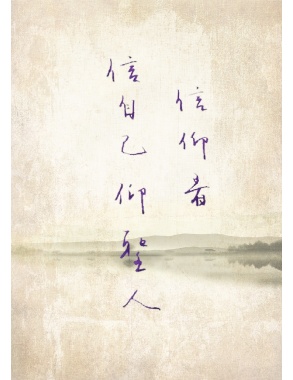 信仰者
信自己仰聖人